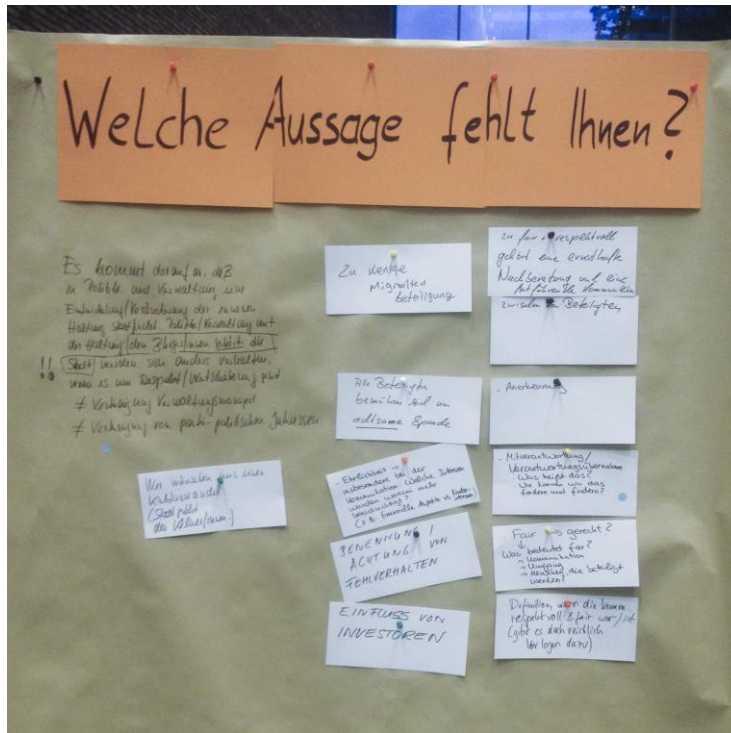 Welche Aussage fehlt Ihnen?
Es kommt darauf an, daß
in Politik und Verwaltung eine
Entwicklung/ der inneren
Haltung stattfindet. Politik/Verwaltung mit
der Haltung den Bürgern/innen
!! Stadt müssen sich anders verhalten,
wenn es um Respekt/Wertschätzung geht
≠ Verwaltungsmonopol
≠ von partei-politischen Interessen
Wir wünschen uns einen
(Stadt
der
Zu wenige
Migranten
beteiligung
Alle Beteiligten
bemühen sich um
achtsame Sprache
- Ehrlichkeit →
insbesondere bei der
Kommunikation (Welche Interessen
werden warum mehr
berücksichtigt?
(z.B. finanzielle Aspekte vs
BENENNUNG /
ACHTUNG VON
FEHLVERHALTEN
EINFLUSS VON
INVESTOREN
Zu fair + respektvoll
gehört eine ernsthafte
Nachberatung und eine
Kommunikation
zwischen Beteiligten
- Anerkennung
- Mitverantwortung/
Verantwortungsübernahme
Was heißt das?
Wie können wir das
fordern und fördern?
- Fair → gerecht?
↓
Was bedeutet fair?
→ Kommunikation
→ Umgang
→ Menschen, die beteiligt
werden?
Definition, wann die
respektvoll & fair war/ist
(gibt es doch reichlich
Vorlagen dazu)